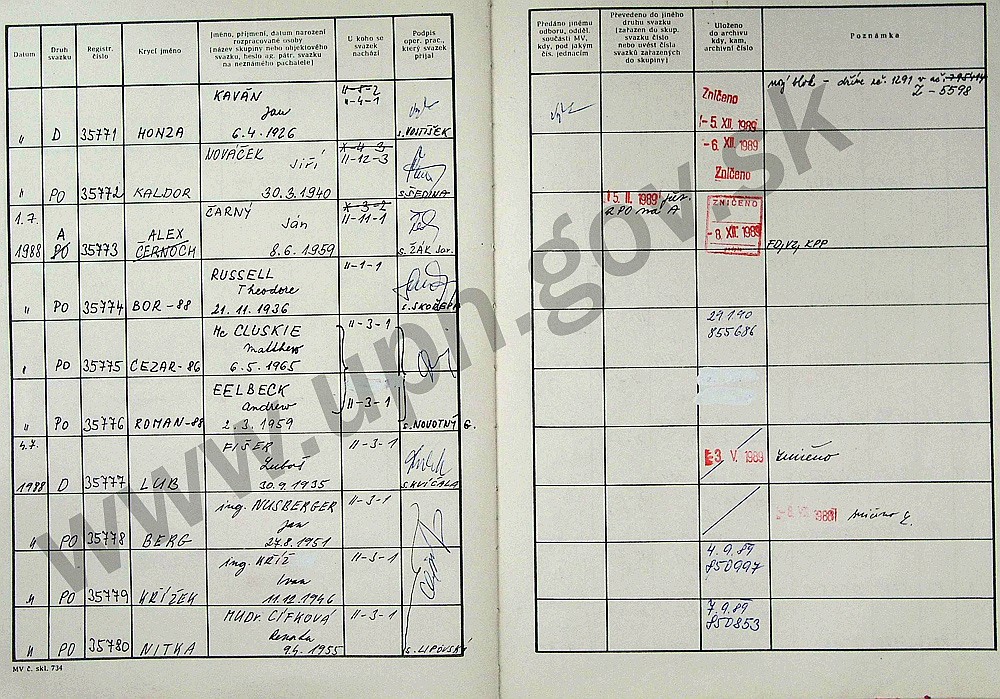 Datum
Druh svazku
Registr. číslo
Krycí jméno
Jméno, příjmení, datum narození
rozpracované osoby
(název skupiny nebo objektového
svazku, heslo ag. pátr. svazku
na neznámého pachatele)
U koho se
svazek
nachází
Podpis
oper. prac.,
který svazek
přijal
Předáno jinému
odboru, odděl.
součásti MV,
kdy, pod jakým
čís. jednacím
Převedeno do jiného
druhu svazku
(zařazen do skup.
svazku číslo
nebo uvést čísla
svazků zařazených
do skupiny)
Uloženo
do archivu
kdy, kam,
archivní číslo
Poznámka
KAVÁN
Jan
" D 35771 HONZA 6.4.1926
II-8-2
II-4-1
s. VOJTÍŠEK
Zničeno
-5. XII. 1989
nový blok - dříve reč. 1291 v
Z-5598
NOVÁČEK
Jiří
" PO 35772 KALDOR 30.3.1940
II-12-3
s. ŠEDINA
-6. XII. 1989
Zničeno
1.7.
1988 A PO 35773 ALEX ČERNOCH
ČARNÝ
Ján
8.6.1959
X-3-2
II-11-1
s. ŽÁK Jar.
15. 11. 1989
z PO na A
ZNIČENO
-8. XII. 1989
FD, VZ, KPP
RUSSELL
Theodore
" PO 35774 BOR-88 21.11.1936
II-1-1
29.1.90
855686
Mc CLUSKIE
Matthew
" PO 35775 CEZAR-86 6.5.1965
II-3-1
EELBECK
Andrew
" PO 35776 ROMAN-88 2.3.1959
II-3-1
s. NOVOTNÝ G.
4.7.
1988 D 35777 LUB
FIŠER
Luboš
30.9.1935
II-3-1
s. KVÍČALA
3. V. 1989
zničeno
ing. NUSBERGER
Jan
" PO 35778 BERG 27.8.1951
II-3-1
zničeno
ing. KŘÍŽ
Ivan
" PO 35779 KŘÍŽEK 11.12.1946
II-3-1
4.9.89
850997
MUDr. CÍFKOVÁ
Renata
" PO 35780 NITKA 9.4.1955
II-3-1
s. LIPOVSKÝ
7.9.89
850853
MV č. skl. 734
www.upn.gov.sk